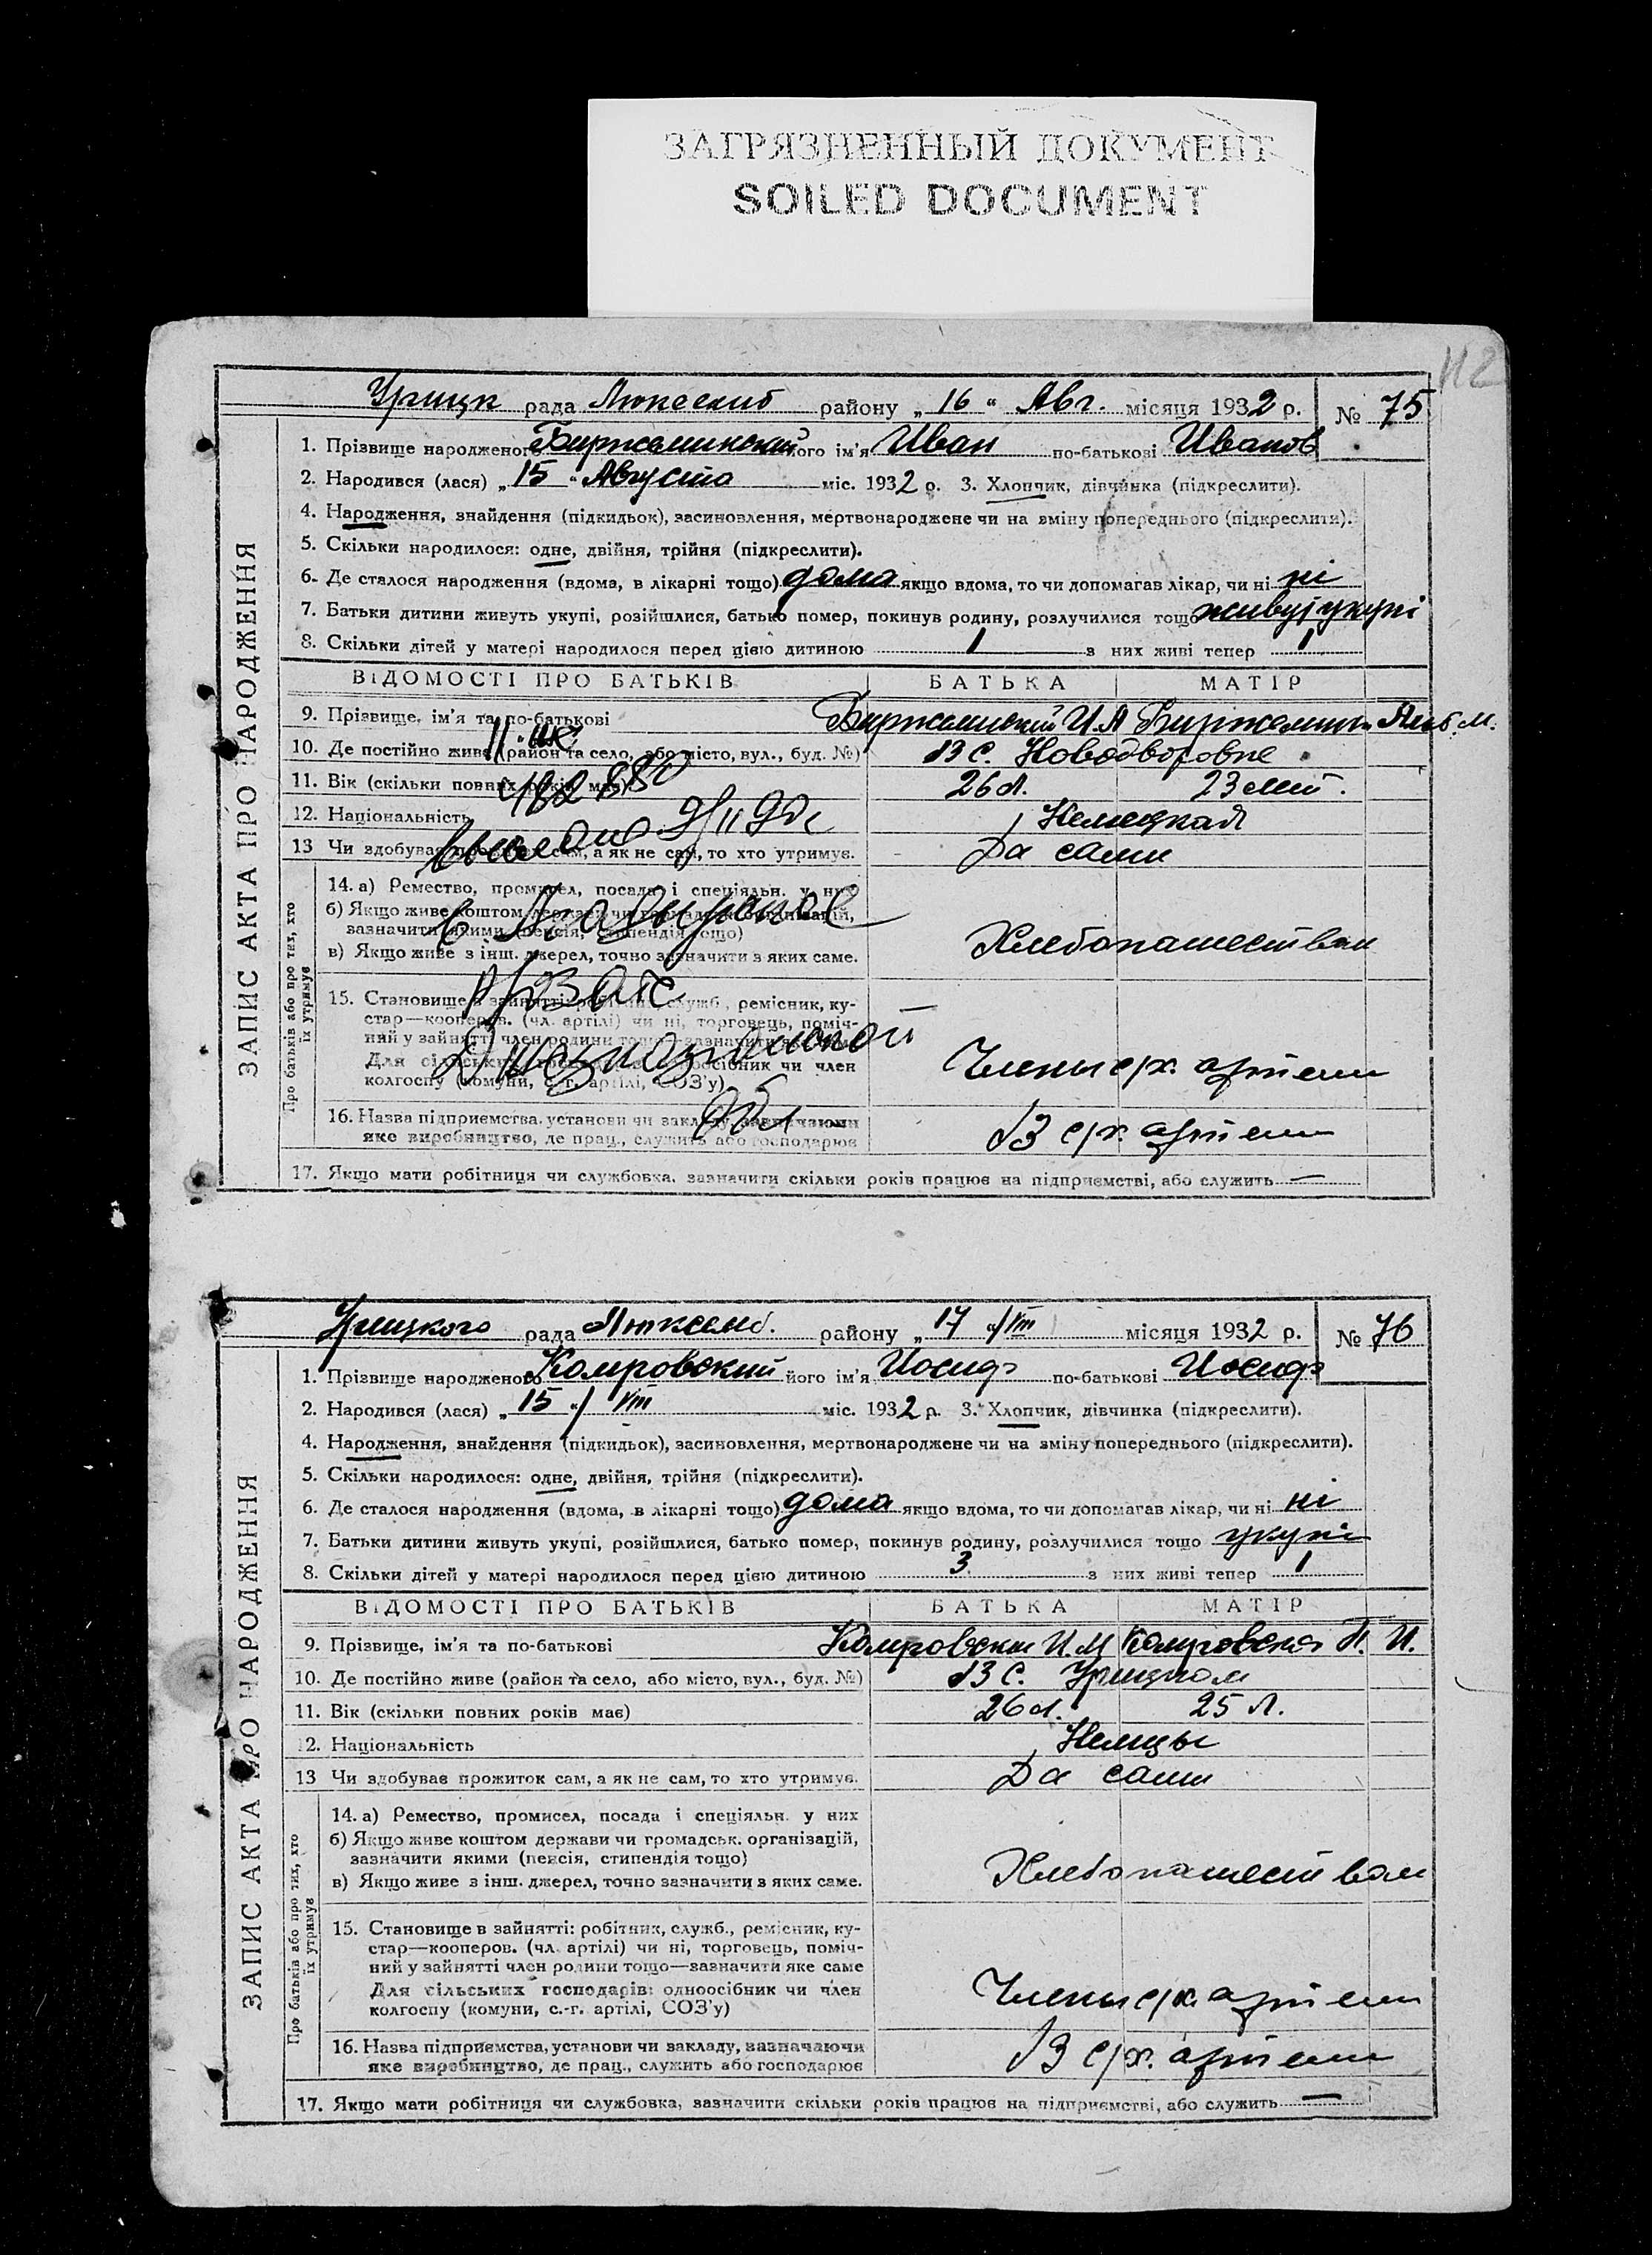 ЗАГРЯЗНЕННЫЙ ДОКУМЕНТ
SOILED DOCUMENT
112
Урицк рада Люксемб району „16“ Авг. місяця 1932 р. № 75
ЗАПИС АКТА ПРО НАРОДЖЕННЯ
1. Прізвище народженого його ім'я Иван по-батькові Иванов
2. Народився (лася) „15“ Августа міс. 1932 р. 3. Хлопчик, дівчинка (підкреслити).
4. Народження, знайдення (підкидьок), засиновлення, мертвонароджене чи на зміну попереднього (підкреслити).
5. Скільки народилося: одне, двійня, трійня (підкреслити).
6. Де сталося народження (вдома, в лікарні тощо) дома якщо вдома, то чи допомагав лікар, чи ні ні
7. Батьки дитини живуть укупі, розійшлися, батько помер, покинув родину, розлучилися тощо живут укупі
8. Скільки дітей у матері народилося перед цією дитиною 1 з них живі тепер 1
ВІДОМОСТІ ПРО БАТЬКІВ БАТЬКА МАТІР
9. Прізвище, ім'я та по-батькові И.А М.
10. Де постійно живе (район та село, або місто, вул., буд. №) В с. Новодворовке
11. Вік (скільки повних років має) 26 л. 23 лет.
12. Національність Немецкая
13 Чи здобуває прожиток сам, а як не сам, то хто утримує. Да сами
Про батьків або про тих, хто їх утримує
14. а) Ремество, промисел, посада і спеціяльн. у них
б) Якщо живе коштом держави чи громадськ. організацій,
зазначити якими (пенсія, стипендія тощо)
в) Якщо живе з інш. джерел, точно зазначити з яких саме. Хлебопашеством
15. Становище в зайнятті: робітник, служб., ремісник, ку-
стар—кооперов. (чл. артілі) чи ні, торговець, поміч-
ний у зайнятті член родини тощо—зазначити яке саме
Для сільських господарів: одноосібник чи член
колгоспу (комуни, с.-г. артілі, СОЗ'у) Члены с/х. артели
16. Назва підприємства, установи чи закладу, зазначаючи
яке виробництво, де прац., служить або господарює В с/х. артели
17. Якщо мати робітниця чи службовка, зазначити скільки років працює на підприємстві, або служить —
Урицкого рада Люксемб. району „17“/VIII місяця 1932 р. № 76
ЗАПИС АКТА ПРО НАРОДЖЕННЯ
1. Прізвище народженого Комровский його ім'я Иосиф по-батькові Иосиф
2. Народився (лася) „15“/VIII міс. 1932 р. 3. Хлопчик, дівчинка (підкреслити).
4. Народження, знайдення (підкидьок), засиновлення, мертвонароджене чи на зміну попереднього (підкреслити).
5. Скільки народилося: одне, двійня, трійня (підкреслити).
6. Де сталося народження (вдома, в лікарні тощо) дома якщо вдома, то чи допомагав лікар, чи ні ні
7. Батьки дитини живуть укупі, розійшлися, батько помер, покинув родину, розлучилися тощо укупі
8. Скільки дітей у матері народилося перед цією дитиною 3 з них живі тепер 1
ВІДОМОСТІ ПРО БАТЬКІВ БАТЬКА МАТІР
9. Прізвище, ім'я та по-батькові Комровски И.М Комровска П. И.
10. Де постійно живе (район та село, або місто, вул., буд. №) В с. Урицком
11. Вік (скільки повних років має) 26 л. 25 л.
12. Національність Немцы
13 Чи здобуває прожиток сам, а як не сам, то хто утримує. Да сами
Про батьків або про тих, хто їх утримує
14. а) Ремество, промисел, посада і спеціяльн. у них
б) Якщо живе коштом держави чи громадськ. організацій,
зазначити якими (пенсія, стипендія тощо)
в) Якщо живе з інш. джерел, точно зазначити з яких саме. Хлебопашеством
15. Становище в зайнятті: робітник, служб., ремісник, ку-
стар—кооперов. (чл. артілі) чи ні, торговець, поміч-
ний у зайнятті член родини тощо—зазначити яке саме
Для сільських господарів: одноосібник чи член
колгоспу (комуни, с.-г. артілі, СОЗ'у) Члены с/х. артели
16. Назва підприємства, установи чи закладу, зазначаючи
яке виробництво, де прац., служить або господарює В с/х. артели
17. Якщо мати робітниця чи службовка, зазначити скільки років працює на підприємстві, або служить —